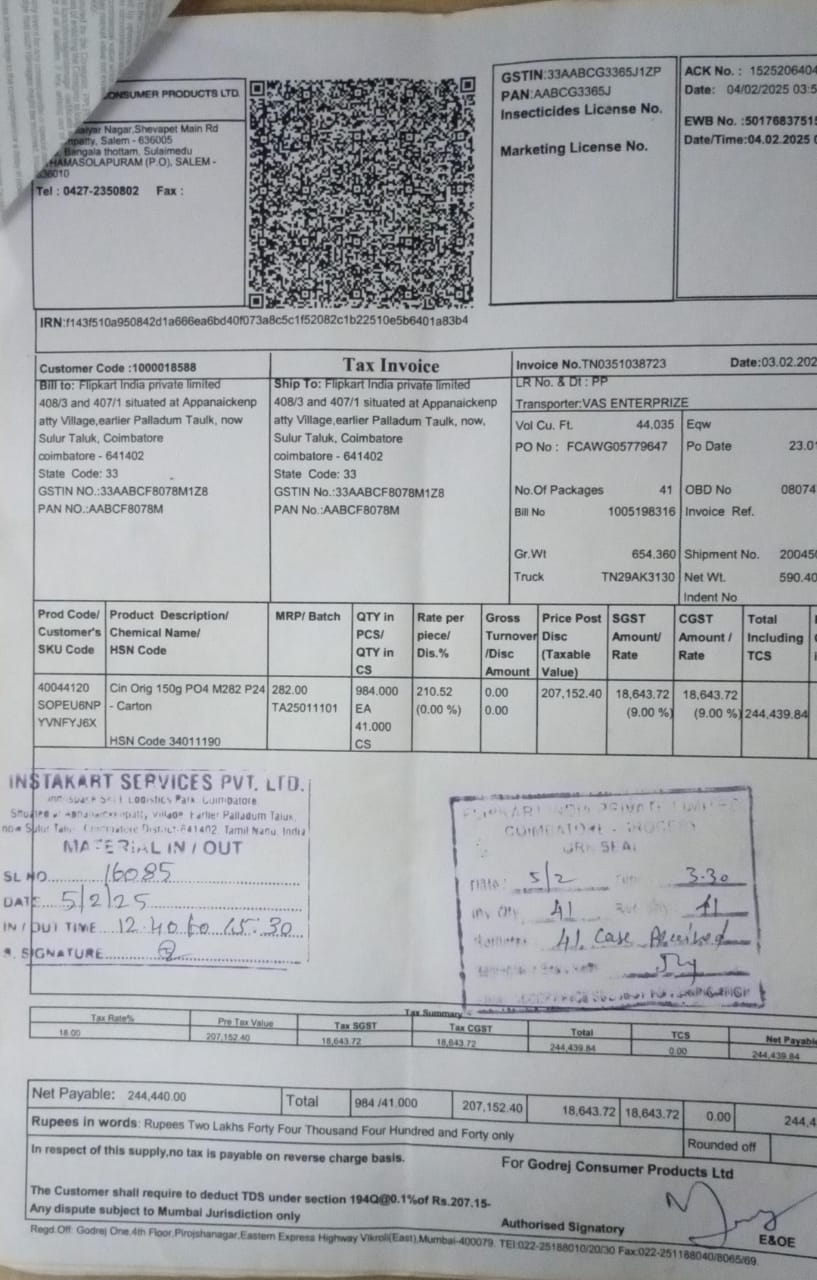 CONSUMER PRODUCTS LTD.
Nagar,Shevapet Main Rd
Salem - 636005
Bangala thottam, Sulaimedu
(P.O), SALEM -
Tel : 0427-2350802 Fax :
GSTIN:33AABCG3365J1ZP
PAN:AABCG3365J
Insecticides License No.
Marketing License No.
ACK No. : 1525206404
Date: 04/02/2025 03:5
EWB No. :50176837515
Date/Time:04.02.2025
IRN:f143f510a950842d1a666ea6bd40f073a8c5c1f52082c1b22510e5b6401a83b4
Customer Code :1000018588
Tax Invoice
Invoice No.TN0351038723 Date:03.02.202
Bill to: Flipkart India private limited
408/3 and 407/1 situated at Appanaickenp
atty Village,earlier Palladum Taulk, now
Sulur Taluk, Coimbatore
coimbatore - 641402
State Code: 33
GSTIN NO.:33AABCF8078M1Z8
PAN NO.:AABCF8078M
Ship To: Flipkart India private limited
408/3 and 407/1 situated at Appanaickenp
atty Village,earlier Palladum Taulk, now,
Sulur Taluk, Coimbatore
coimbatore - 641402
State Code: 33
GSTIN NO.:33AABCF8078M1Z8
PAN No.:AABCF8078M
LR No. & Dt : PP
Transporter:VAS ENTERPRIZE
Vol Cu. Ft. 44.035 Eqw
PO No : FCAWG05779647 Po Date 23.0
No.Of Packages 41 OBD No 08074
Bill No 1005198316 Invoice Ref.
Gr.Wt 654.360 Shipment No. 200450
Truck TN29AK3130 Net Wt. 590.40
Indent No
Prod Code/ Customer's SKU Code
Product Description/ Chemical Name/ HSN Code
MRP/ Batch
QTY in PCS/ QTY in CS
Rate per piece/ Dis.%
Gross Turnover /Disc Amount
Price Post Disc (Taxable Value)
SGST Amount/ Rate
CGST Amount / Rate
Total Including TCS
40044120 Cin Orig 150g PO4 M282 P24 282.00 984.000 210.52 0.00 207,152.40 18,643.72 18,643.72
SOPEU6NP - Carton TA25011101 EA (0.00 %) 0.00 (9.00 %) (9.00 %) 244,439.84
YVNFYJ6X 41.000
HSN Code 34011190 CS
INSTAKART SERVICES PVT. LTD.
Logistics Park, Coimbatore
Village Earlier Palladum Taluk,
now Sulur Taluk, Coimbatore District-641402, Tamil Nadu, India
MATERIAL IN / OUT
SL NO 16085
DATE 5/2/25
IN / OUT TIME 12.40 to 15:30
SIGNATURE
FLIPKART INDIA PRIVATE LIMITED
COIMBATORE - GROCERY
GRN SEAL
Date: 5/2 3.30
Inv Qty 41 41
41 Case Received
Tax Summary
Tax Rate% Pre Tax Value Tax SGST Tax CGST Total TCS Net Payable
18.00 207,152.40 18,643.72 18,643.72 244,439.84 0.00 244,439.84
Net Payable: 244,440.00 Total 984 /41.000 207,152.40 18,643.72 18,643.72 0.00 244,4
Rupees in words: Rupees Two Lakhs Forty Four Thousand Four Hundred and Forty only
Rounded off
In respect of this supply,no tax is payable on reverse charge basis.
For Godrej Consumer Products Ltd
The Customer shall require to deduct TDS under section 194Q@0.1%of Rs.207.15-
Any dispute subject to Mumbai Jurisdiction only
Authorised Signatory
E&OE
Regd.Off: Godrej One,4th Floor,Pirojshanagar,Eastern Express Highway Vikroli(East),Mumbai-400079. TEl:022-25188010/20/30 Fax:022-251188040/8065/69.